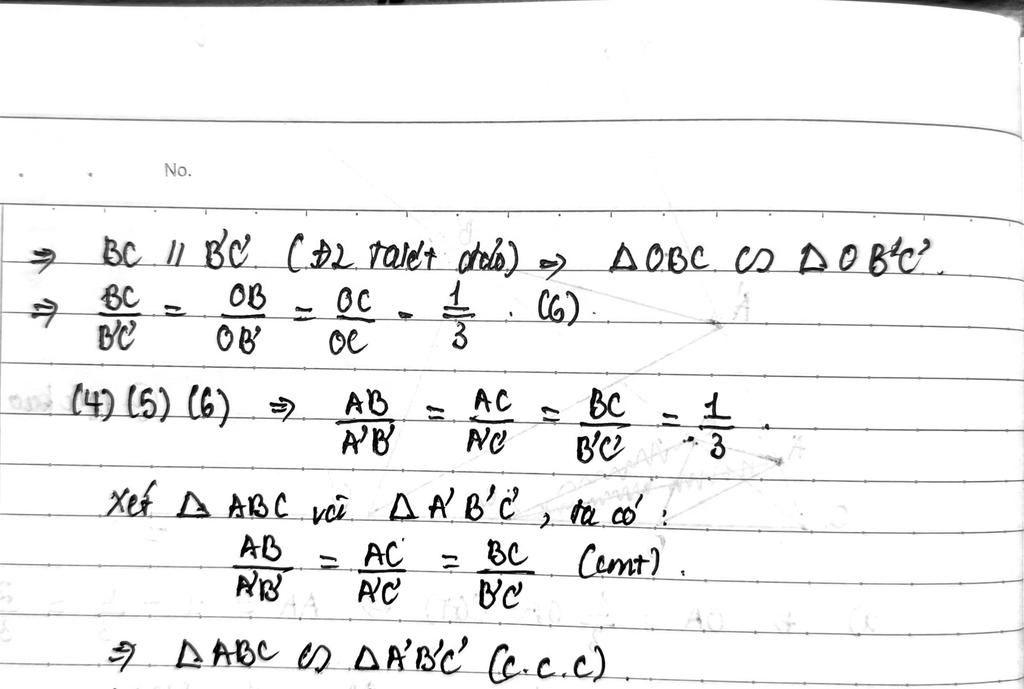 No.
⇒ BC // B'C' (ĐL Talét đảo) ⇒ Δ OBC ∽ Δ OB'C'.
⇒ BC/B'C' = OB/OB' = OC/OC = 1/3. (6).
(4) (5) (6) ⇒ AB/A'B' = AC/A'C' = BC/B'C' = 1/3.
Xét Δ ABC với Δ A'B'C', ta có:
AB/A'B' = AC/A'C' = BC/B'C' (cmt).
⇒ Δ ABC ∽ Δ A'B'C' (c.c.c)